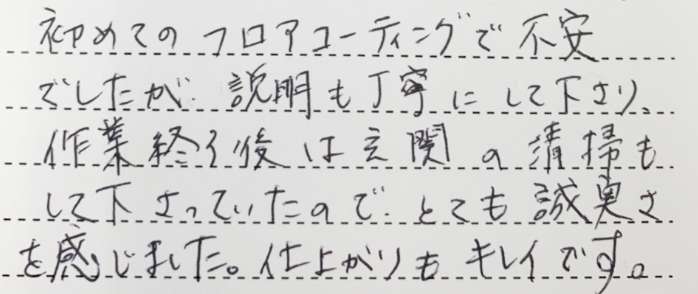 初めてのフロアコーティングで不安
でしたが、説明も丁寧にして下さり、
作業終了後は玄関の清掃も
して下さっていたので、とても誠実さ
を感じました。仕上がりもキレイです。